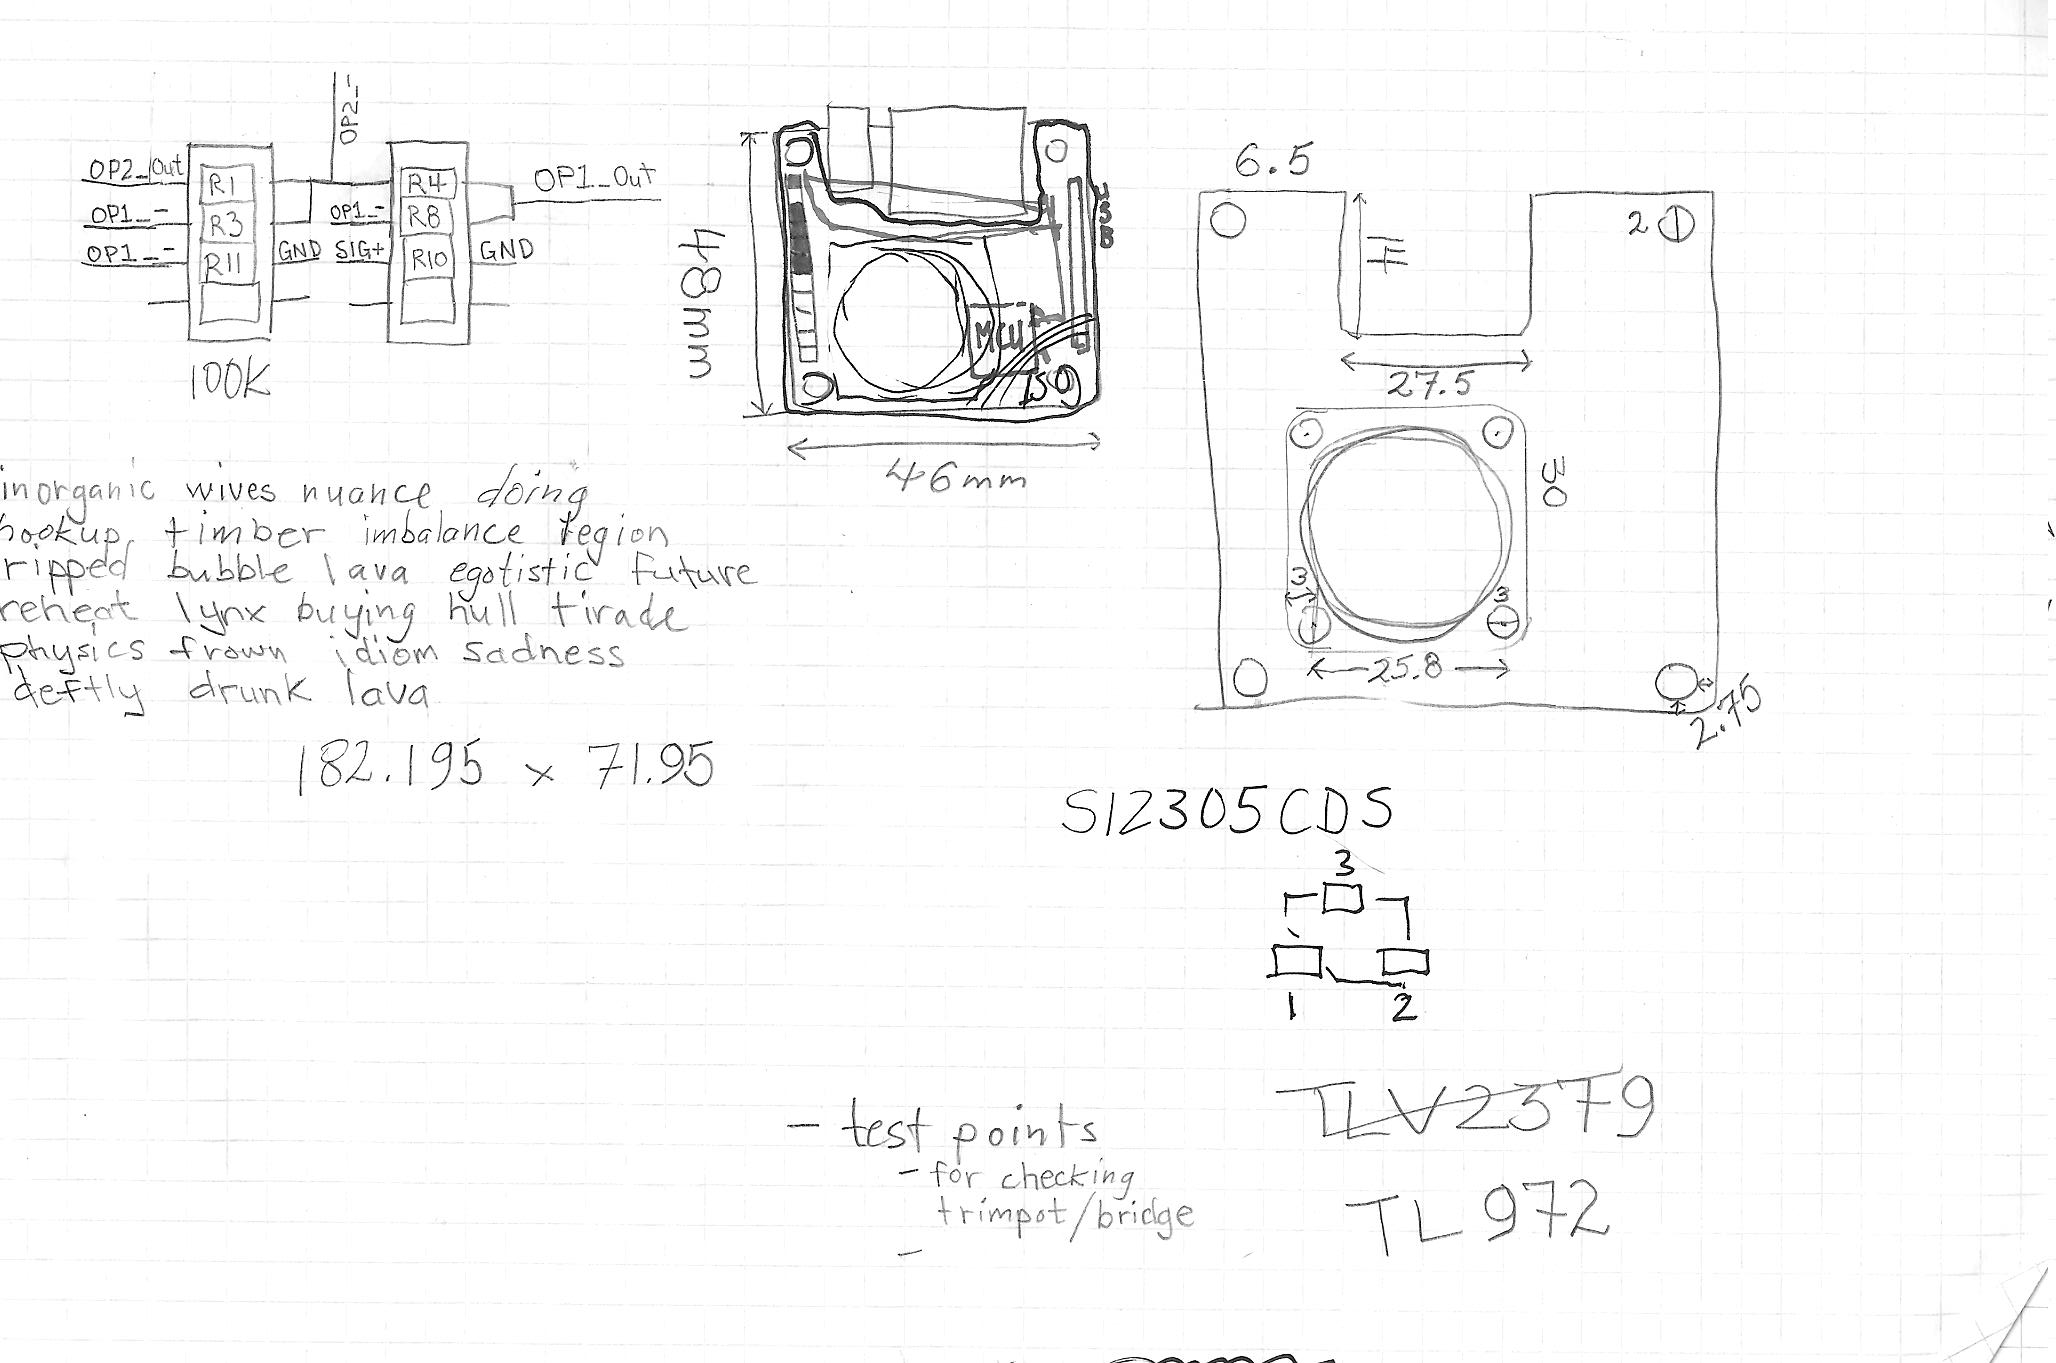 OP2_-
OP2_Out
R1
R4
OP1_Out
OP1_-
R3
OP1_-
R8
OP1_-
R11
GND
SIG+
R10
GND
100K
48mm
USB
MCU
46mm
6.5
2
14
27.5
30
3
3
25.8
2.75
inorganic wives nuance doing
hookup timber imbalance region
ripped bubble lava egotistic future
reheat lynx buying hull tirade
physics frown idiom sadness
deftly drunk lava
182.195 x 71.95
SI2305CDS
3
1
2
- test points
- for checking
trimpot/bridge
-
TLV2379
TL972